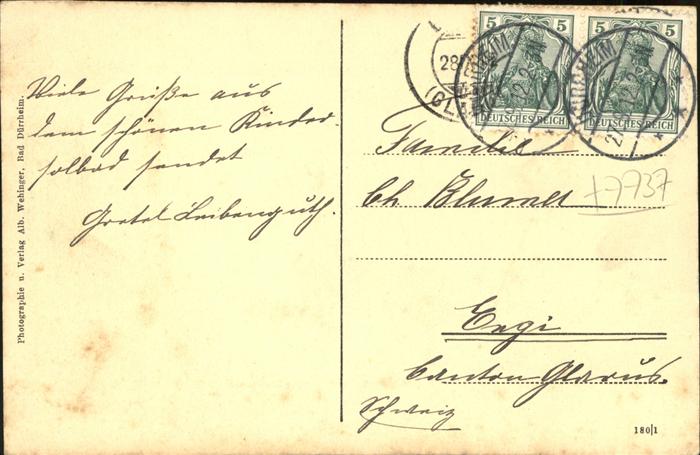 Viele Grüße aus
dem schönen Kinder-
solbad sendet
Gretel Leibenguth.
Photographie u. Verlag Alb. Wehinger, Bad Dürrheim.
5 5 5 5
DEUTSCHES REICH DEUTSCHES REICH
28
27
Familie
Ch. Blumer
+9937
Engi
Canton Glarus.
Schweiz
180/1